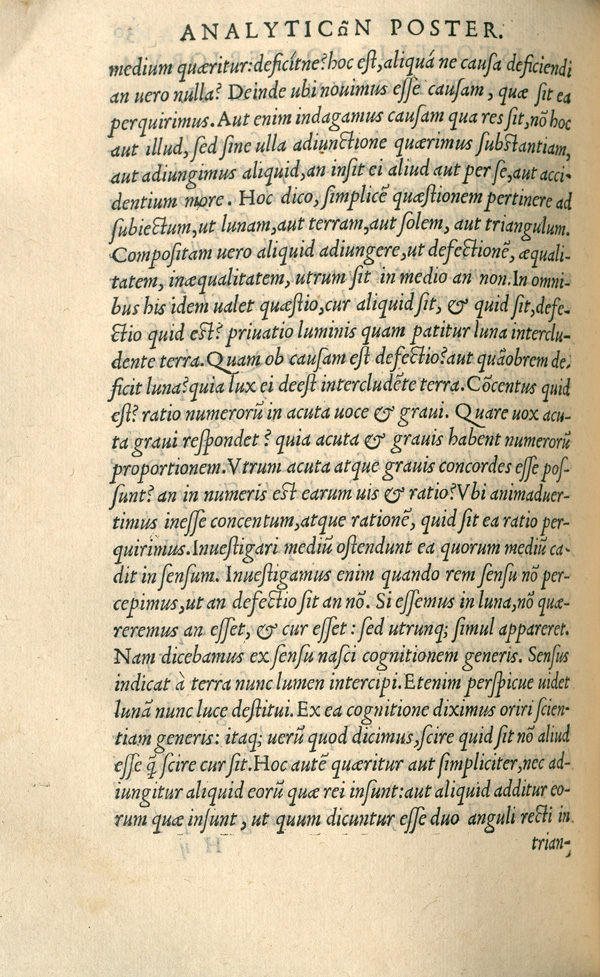 ANALYTICωn̄N POSTER.
medium quæritur:deficitne?hoc est,aliquá ne causa deficiendi
an uero nulla? Deinde ubi nouimus esse causam, quæ sit ea
perquirimus.Aut enim indagamus causam qua res sit,nõ hoc
aut illud, sed sine ulla adiunctione quærimus substantiam,
aut adiungimus aliquid,an insit ei aliud aut per se,aut acci-
dentium more. Hoc dico, simplicẽ quæstionem pertinere ad
subiectum,ut lunam,aut terram,aut solem, aut triangulum.
Compositam uero aliquid adiungere,ut defectionẽ, æquali-
tatem, inæqualitatem, utrum sit in medio an non.In omni-
bus his idem ualet quæstio,cur aliquid sit, & quid sit,defe-
ctio quid est? priuatio luminis quam patitur luna interclu-
dente terra.Quam ob causam est defectio?aut quãobrem de-
ficit luna?quia lux ei deest intercludẽte terra.Cõcentus quid
est? ratio numerorũ in acuta uoce & graui. Quare uox acu-
ta graui respondet? quia acuta & grauis habent numerorũ
proportionem.Vtrum acuta atque grauis concordes esse pos-
sunt? an in numeris est earum uis & ratio?Vbi animaduer-
timus inesse concentum,atque rationẽ, quid sit ea ratio per-
quirimus.Inuestigari mediũ ostendunt ea quorum mediũ ca-
dit in sensum. Inuestigamus enim quando rem sensu nõ per-
cepimus,ut an defectio sit an nõ. Si essemus in luna,nõ quæ-
reremus an esset, & cur esset: sed utrunq; simul appareret.
Nam dicebamus ex sensu nasci cognitionem generis. Sensus
indicat à terra nunc lumen intercipi.Etenim perspicue uidet
lunã nunc luce destitui. Ex ea cognitione diximus oriri scien-
tiam generis: itaq; uerũ quod dicimus,scire quid sit nõ aliud
esse q̃ scire cur sit.Hoc autẽ quæritur aut simpliciter,nec ad-
iungitur aliquid eorũ quæ rei insunt:aut aliquid additur eo-
rum quæ insunt, ut quum dicuntur esse duo anguli recti in
trian-